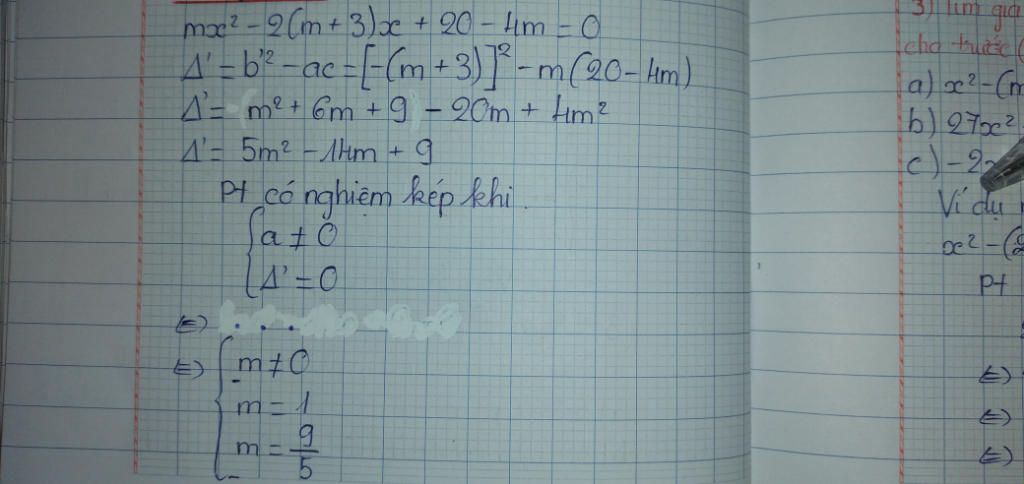 mx² - 2(m + 3)x + 20 - 4m = 0
Δ' = b'² - ac = [-(m + 3)]² - m(20 - 4m)
Δ' = m² + 6m + 9 - 20m + 4m²
Δ' = 5m² - 14m + 9
Pt có nghiệm kép khi.
{ a ≠ 0
Δ' = 0
⇔) . . .
⇔) { m ≠ 0
m = 1
m = 9/5
3) Tìm giá
cho trước (
a) x² - (m
b) 27x²
c) -2x
Ví dụ
x² - (2
Pt
⇔)
⇔)
⇔)